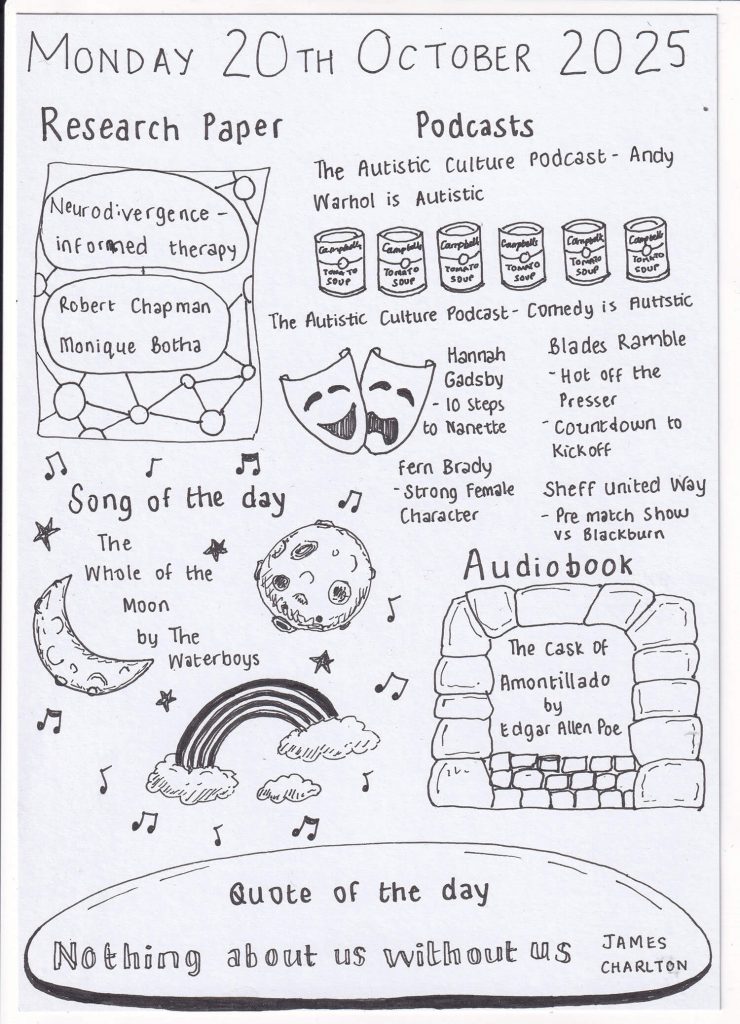 Monday 20th October 2025
Research Paper
Neurodivergence -
informed therapy
Robert Chapman
Monique Botha
Podcasts
The Autistic Culture Podcast - Andy
Warhol is Autistic
Campbell's
Tomato
Soup
Campbell's
Tomato
Soup
Campbell's
Tomato
Soup
Campbell's
Tomato
Soup
Campbell's
Tomato
Soup
Campbell's
Tomato
Soup
The Autistic Culture Podcast - Comedy is Autistic
Hannah
Gadsby
- 10 Steps
to Nanette
Fern Brady
- Strong Female
Character
Blades Ramble
- Hot off the
Presser
- Countdown to
Kickoff
Sheff United Way
- Pre match Show
vs Blackburn
Song of the day
The
Whole of the
Moon
by The
Waterboys
Audiobook
The Cask of
Amontillado
by
Edgar Allen Poe
Quote of the day
Nothing about us without us
JAMES
CHARLTON